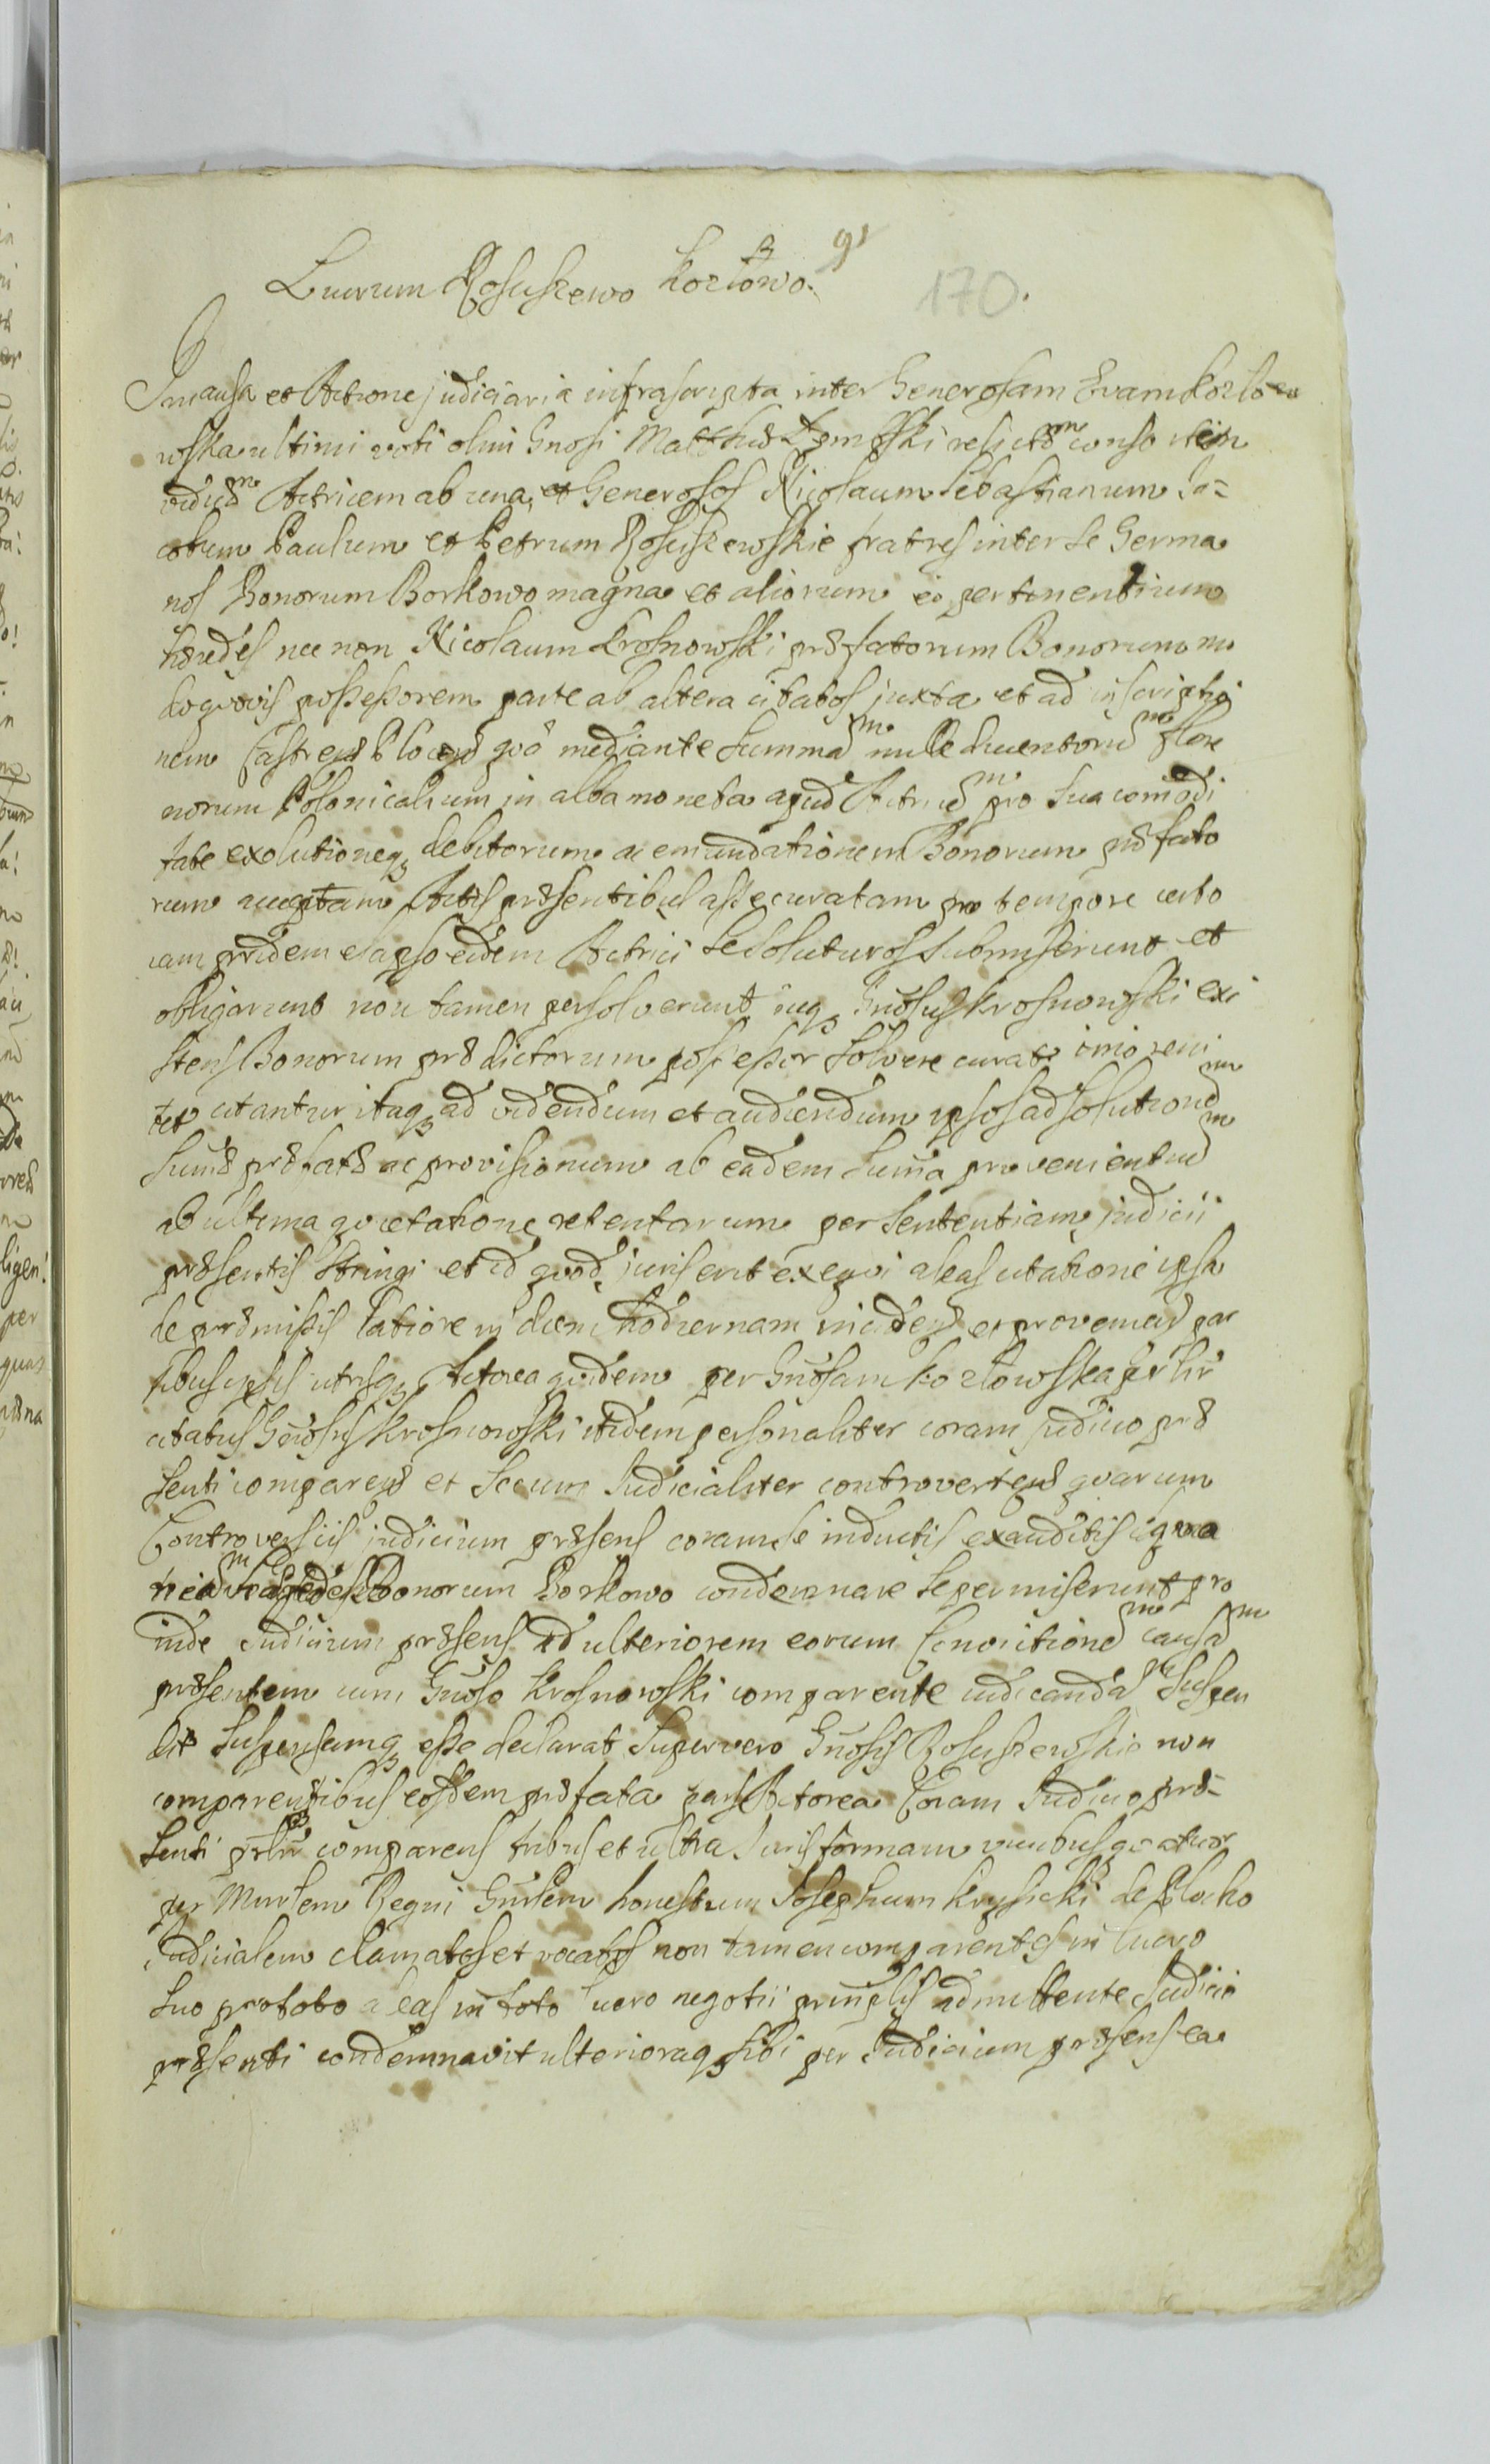 91
Lucrum Rosuszewo Kozłowo.
170.
In causa et Actione judiciaria infrascripta inter Generosam Evam Kozło
wska ultimi voti olim Gnosi Matthiæ relictæm consortem
viduæm Actricem ab una, et Generosos Nicolaum Sebastianum Ja=
cobum Paulum et Petrum Rosuszewskie fratres inter se Germa
nos Bonorum Borkowo magna et aliorum eo pertinentium
hæredes nec non Nicolaum Krosnowski præfatorum Bonorum mo
doquovis possessorem parte ab altera citatos juxta et ad inscriptio
nem Castren Plocen quo mediante Summam mille ducentorum flore
norum Polonicalium in alba moneta apud Actricem pro sua comodi
tate exolutioneq debitorum ac emundationem Bonorum præfato
rum acceptam Actis præsentibus assecuratam pro tempore certo
iam pridem elapso eidem Actrici se soluturos submiserunt et
obligarunt non tamen persolverunt neq Gnosus Krosnowski exi
stens Bonorum prædictorum possessor solvere curat imo reni
tet citantur itaq ad videndum et audiendum ipsos ad solutionem
Sumæ præfatæ ac provisionum ab eadem suma provenientium
ab ultima quietatione retentarum per sententiam judicii
præsentis stringi et id quod juris erit exequi aleas citatione ipsa
de præmissis latiore in diem hodiernam inciden et provenien par
tibus ipsis utrisq Actorea quidem per Gnosam Kozłowska perlir
citatus Gnosus Krosnowski itidem personaliter coram judicio præ
senti comparen et secum Judicialiter controverten quarum
Controversiis judicium præsens coram se inductis exauditis iq
hæredes Bonorum Borkowo condemnare se permiserunt pro
inde Judicium præsens ad ulteriorem eorum Convictionem causam
præsentem cum Gnoso Krosnowski comparente iudicandam Suspen
dit suspensamq esse declarat Super vero Gnosis Rosuszewskie non
comparentibus eosdem præfata pars Actorea Coram Judicio præ=
senti prlir comparens tribus et ultra Juris formam vicibus quatuor
per Mnrlem Regni Gnrlem honestum Josephum Krysicki de Plocko
Judicialem clamatos et vocatos non tamen comparentes in lucro
suo protobo aleas in toto lucro negotii prinplis admittente Judicio
præsenti condemnavit ulterioraq sibi per Judicium præsens ea